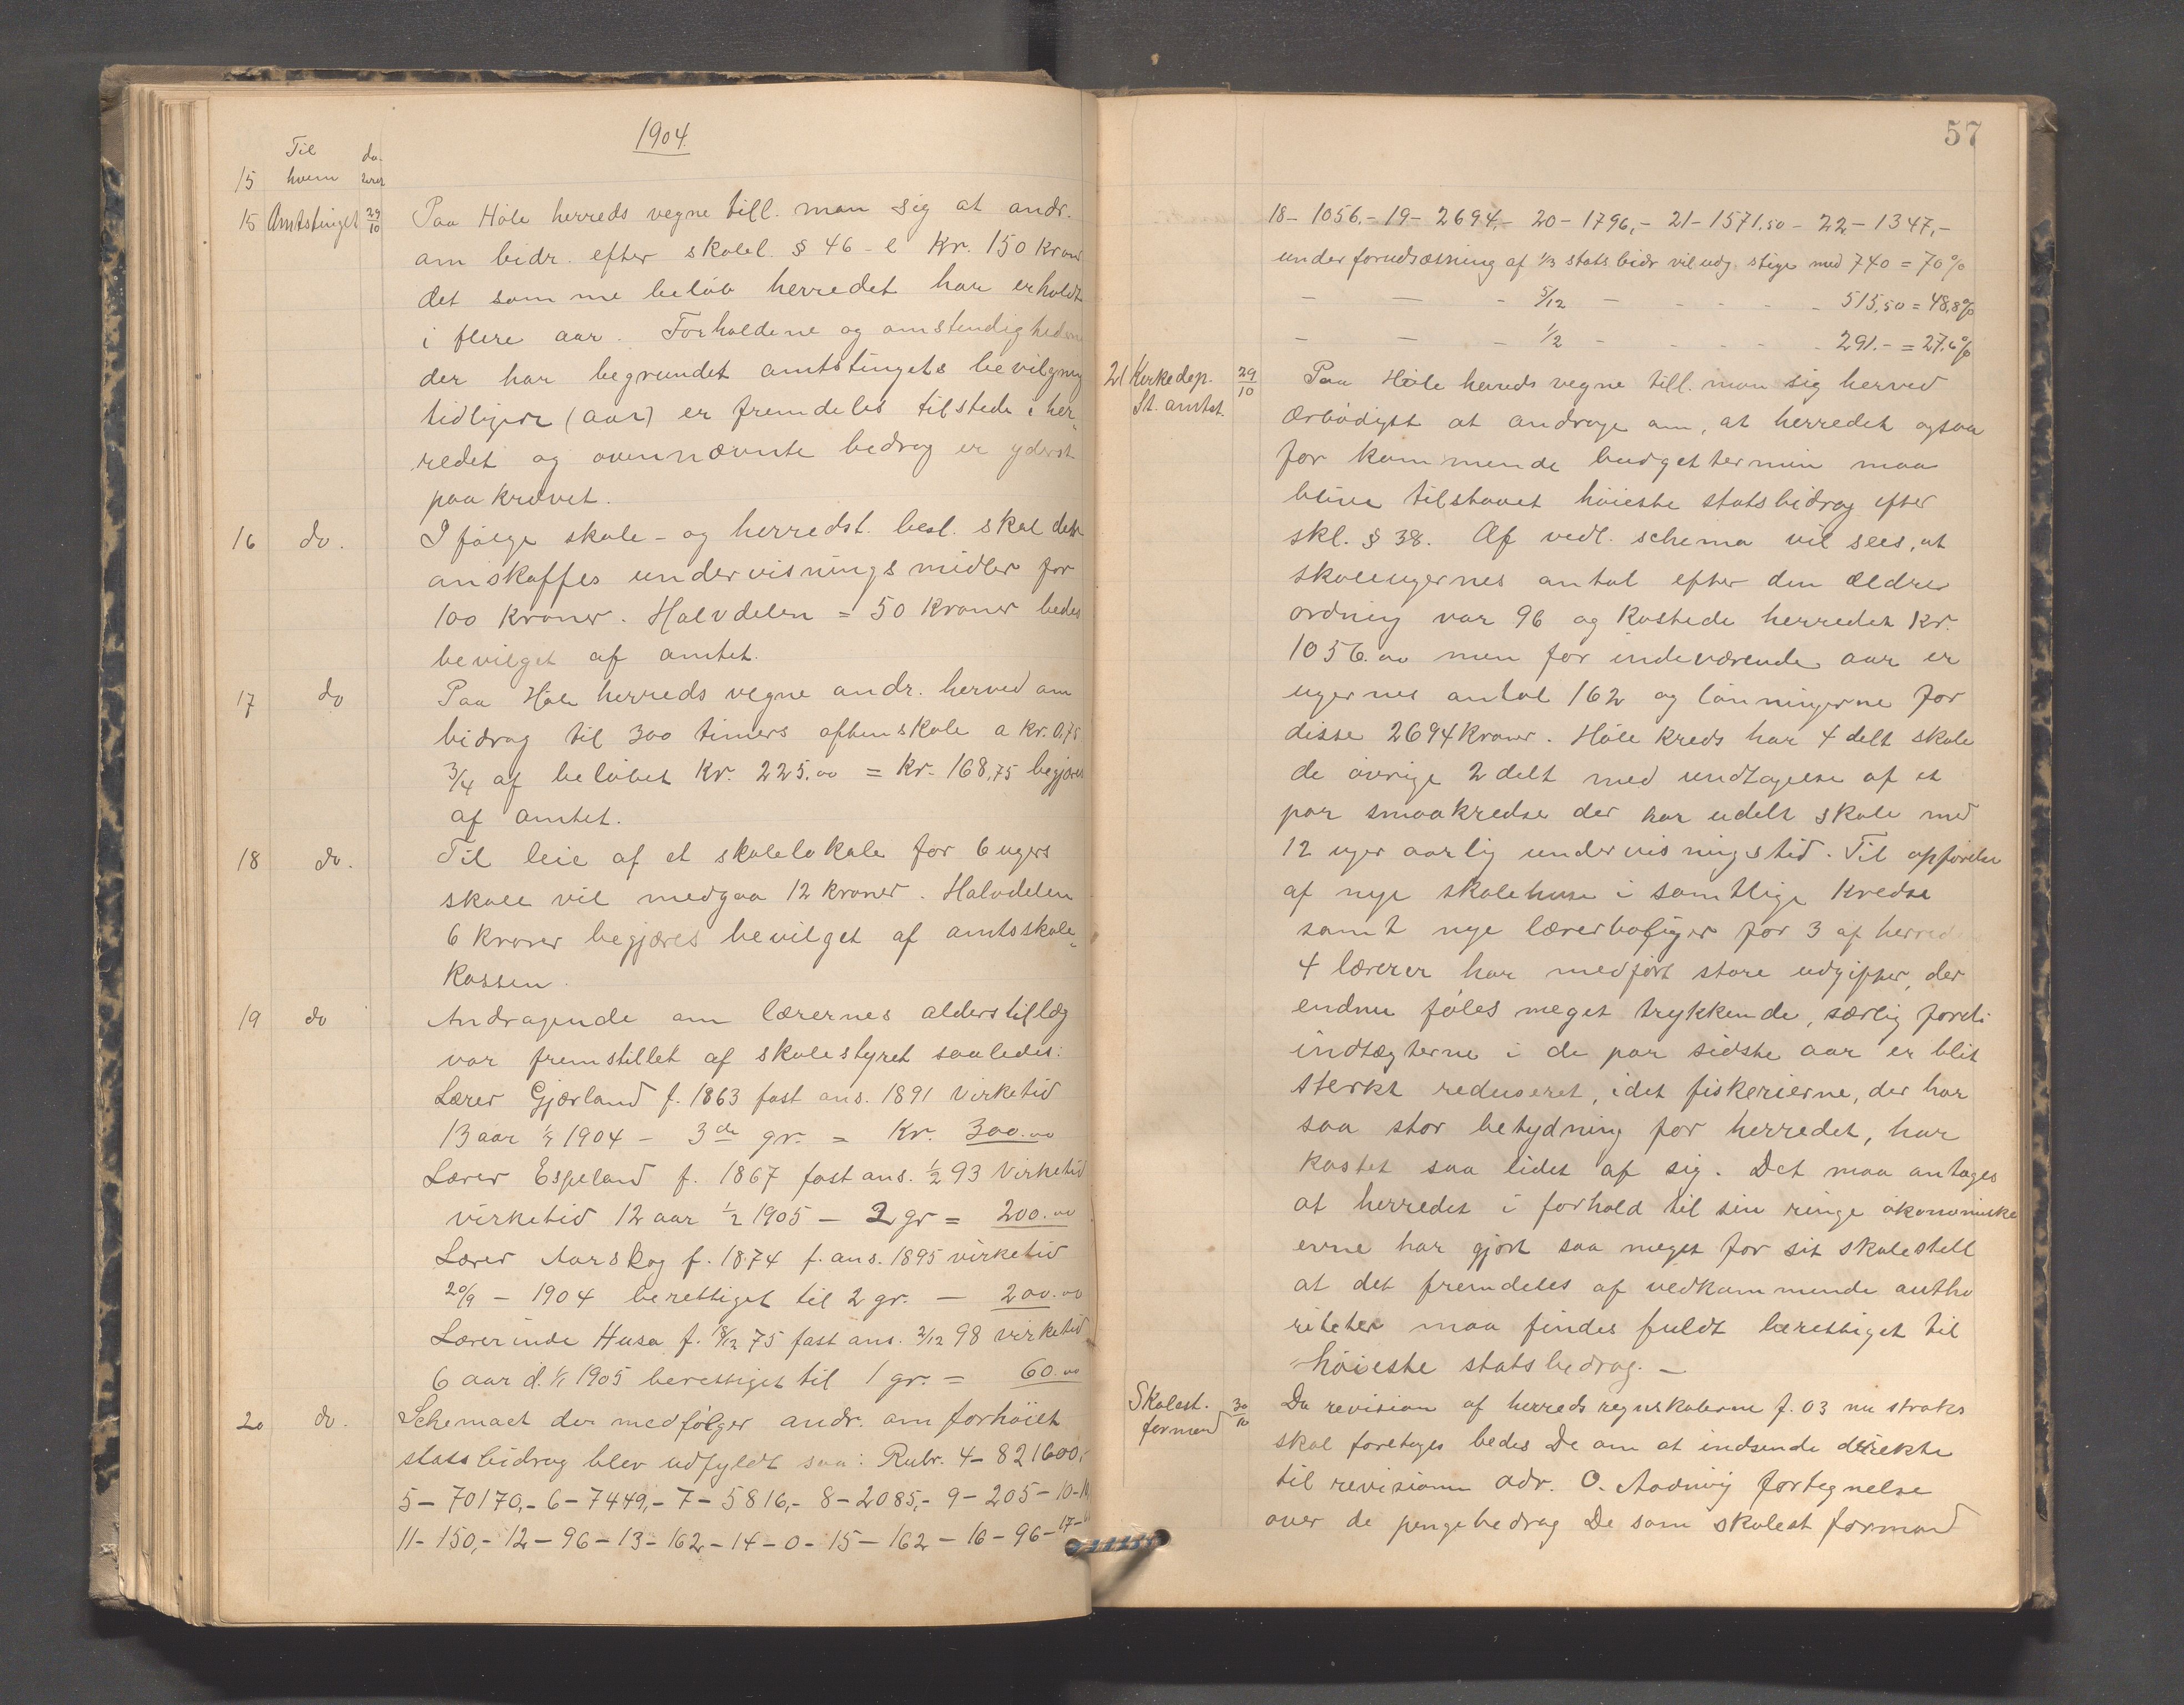 1904.
Til hvem
15
15 Amtstinget 29/10 Paa Høle herreds vegne till. man sig at andr.
om bidr. efter skolel. § 46 - e Kr. 150 Kroner
det samme beløb herredet har erholdt
i flere aar. Forholdene og omstendigheden
der har begrundet amtstingets bevilgning
tidligere (aar) er fremdeles tilstede i her-
redet og ovennævnte bedrag er yderst
paakrævet.
16 do. Ifølge skole- og herredst. besl. skal der
anskaffes undervisningsmidler for
100 Kroner. Halvdelen = 50 Kroner bedes
bevilget af amtet.
17 do Paa Høle herreds vegne andr. herved om
bidrag til 300 timers aftenskole a Kr. 0,75
3/4 af beløbet Kr. 225.00 = Kr. 168,75 begjæres
af amtet.
18 do. Til leie af et skolelokale for 6 ugers
skole vil medgaa 12 Kroner. Halvdelen
6 Kroner begjæres bevilget af amtsskole-
kassen.
19 do Andragende om lærernes alderstillæg
var fremstillet af skolestyret saaledes:
Lærer Gjærland f. 1863 fast ans. 1891 Virketid
13 aar 1904 - 3de gr. = Kr. 300.00
Lærer Espeland f. 1867 fast ans. 1/2 93 Virketid
virketid 12 aar 1/2 1905 - 2 gr = 200.00
Lærer Aarskog f. 1874 f. ans. 1895 virketid
20/9 - 1904 berettiget til 2 gr. - 200.00
Lærerinde Husa f. 8/12 75 fast ans. 2/12 98 virketid
6 aar d. 1/1 1905 berettiget til 1 gr. = 60.00
20 do. Schemaet der medfølger andr. om forhøiet
statsbidrag blev udfyldt saa: Rubr. 4- 821600,-
5- 70170,- 6- 7449,- 7- 5816,- 8- 2085,- 9- 205- 10-
11- 150,- 12- 96- 13- 162- 14- 0- 15- 162- 16- 96- 17-
57
18- 1056.- 19- 2694,- 20- 1796,- 21- 1571.50- 22- 1347,-
under forudsætning af 1/3 statsbidr vil udg. stige med 740 = 70%
- - - 5/12 - - - - - 515,50 = 48,8%
- - - 1/2 - - - - - 291.- = 27.6%
21 Kirkedep. St. amtet. 29/10 Paa Høle herreds vegne till. man sig herved
ærbødigst at andrage om, at herredet ogsaa
for kommende budgettermin maa
blive tilstaaet høieste statsbidrag efter
skl. § 38. Af vedl. schema vil sees, at
skoleugernes antal efter den ældre
ordning var 96 og kostede herredet Kr.
1056.00 men for indeværende aar er
ugernes antal 162 og lønningerne for
disse 2694 Kroner. Høle kreds har 4 delt skole
de øvrige 2 delt med undtagelse af et
par smaakredse der har udelt skole med
12 uger aarlig undervisningstid. Til opførelse
af nye skolehuse i samtlige kredse
samt nye lærerboliger for 3 af herredets
4 lærerer har medført store udgifter, der
endnu føles meget trykkende, særlig fordi
indtægterne i de par sidste aar er blit
sterkt reduseret, idet fiskerierne, der har
saa stor betydning for herredet, har
kastet saa lidet af sig. Det maa antages
at herredet i forhold til sin ringe økonomiske
evne har gjort saa meget for sit skolestell
at det fremdeles af vedkommende autho
riteter maa findes fuldt berettiget til
høieste statsbedrag. -
Skolest. formand 30/10 Da revision af herredsregnskaberne f. 03 nu straks
skal foretages bedes De om at indsende direkte
til revisionen adr. O. Aadnøy fortegnelse
over de pengebedrag De som skolest formand